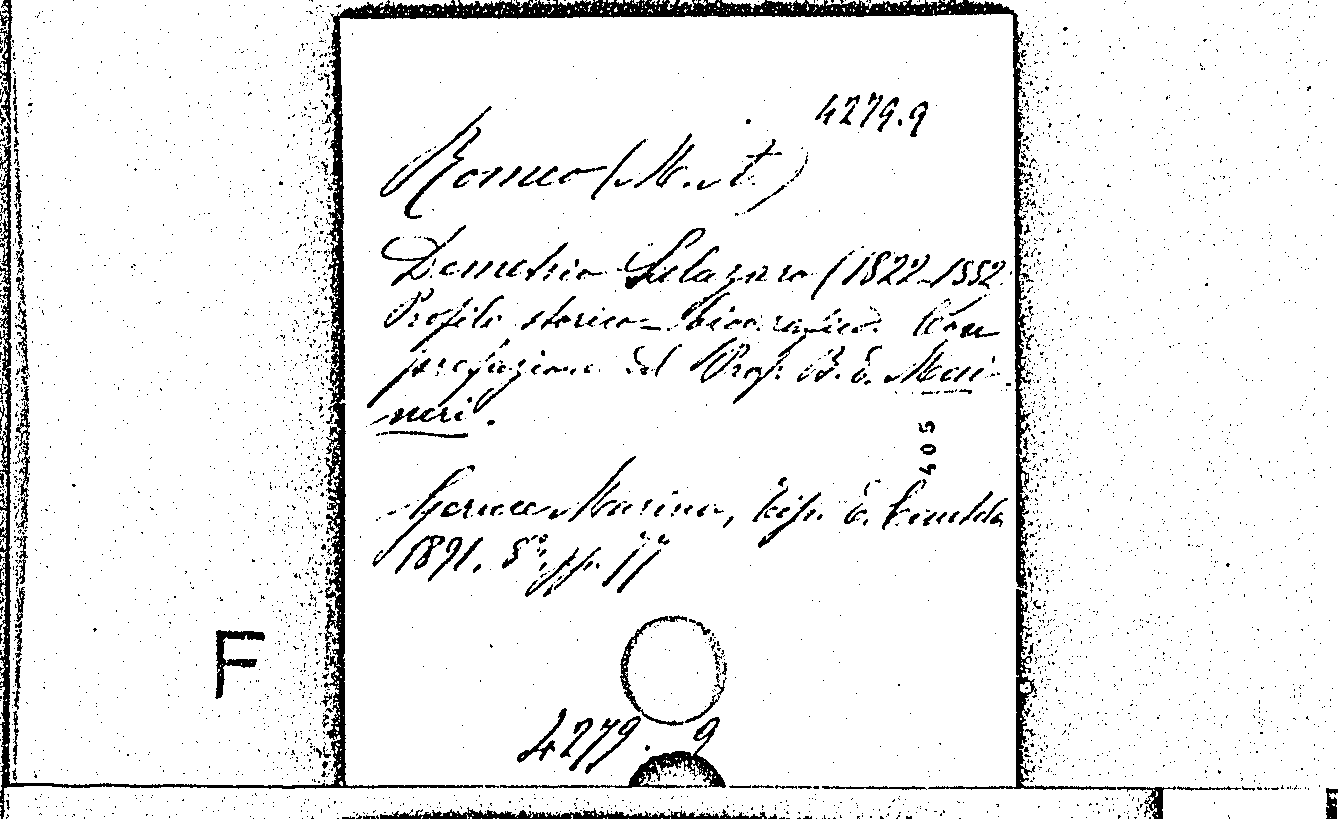 4279.9
Romeo (M. A.)
Demetrio Salazaro (1822-1882
Profilo storico-biografico. Con
prefazione del Prof. B. E. Mai-
neri.
405
Marina, Tip. E.
1891. 8°, pp. 77
F
4279. 9